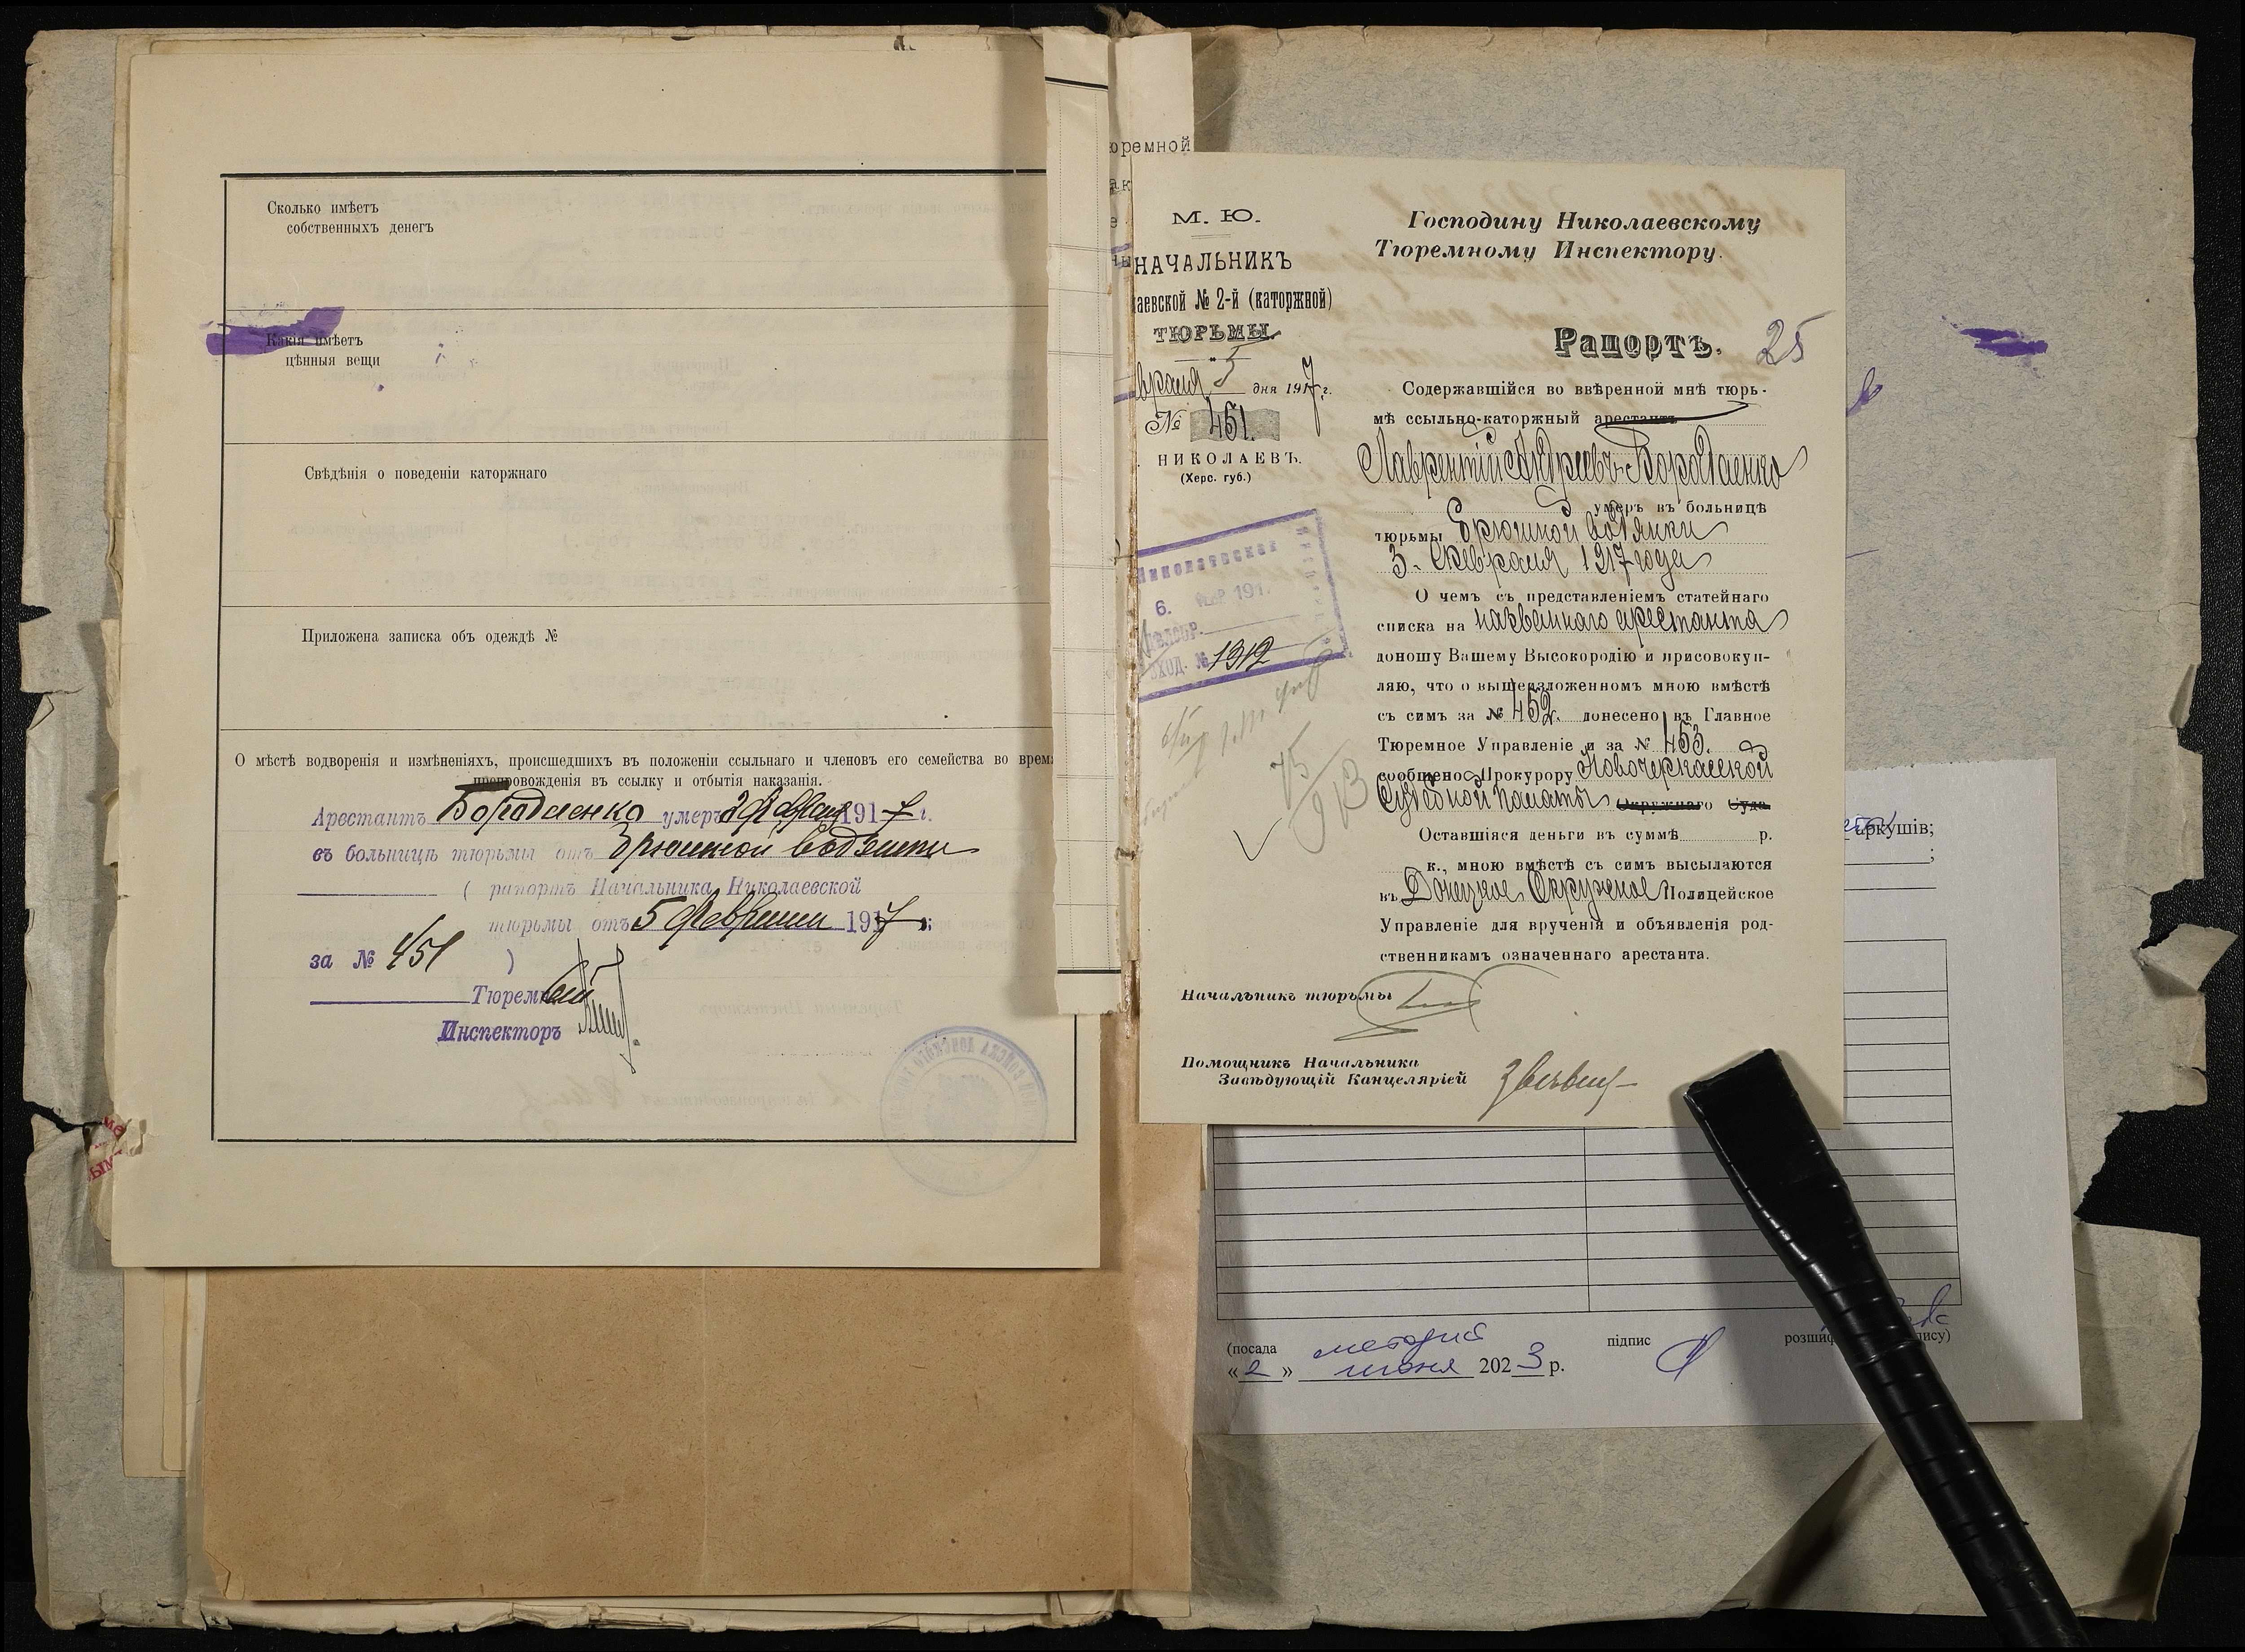 Сколько имѣетъ
собственныхъ денегъ
Какія имѣетъ
цѣнныя вещи
Свѣдѣнія о поведеніи каторжнаго
Приложена записка объ одеждѣ №
О мѣстѣ водворенія и измѣненіяхъ, происшедшихъ въ положеніи ссыльнаго и членовъ его семейства во врем
препровожденія въ ссылку и отбытія наказанія.
Арестантъ Бородаенко умеръ 3 Февраля 1917 г.
въ больницѣ тюрьмы отъ брюшной водянки
( рапортъ Начальника Николаевской
тюрьмы отъ 5 Февраля 1917 г.
за № 451 )
Тюремный
Инспекторъ
юремной
ак
е
М. Ю.
НАЧАЛЬНИКЪ
аевской № 2-й (каторжной)
ТЮРЬМЫ.
враля 5 дня 1917 г.
№ 451.
НИКОЛАЕВЪ.
(Херс. губ.)
Николаевская
6. ФЕВР 191
ВХОД. № 1912
75
913
Господину Николаевскому
Тюремному Инспектору.
Рапортъ. 25
Содержавшійся во ввѣренной мнѣ тюрь-
мѣ ссыльно-каторжный арестантъ
Лаврентій Андреевъ Бородаенко
умеръ въ больницѣ
тюрьмы брюшной водянки
3. Февраля 1917 года
О чемъ съ представленіемъ статейнаго
списка на названнаго арестанта
доношу Вашему Высокородію и присовокуп-
ляю, что о вышеизложенномъ мною вмѣстѣ
съ симъ за № 452. донесено въ Главное
Тюремное Управленіе и за № 453.
сообщено Прокурору Новочеркасской
Судебной Палаты Окружнаго Суда
Оставшіяся деньги въ суммѣ р.
к., мною вмѣстѣ съ симъ высылаются
въ Донецкое Окружное Полицейское
Управленіе для врученія и объявленія род-
ственникамъ означеннаго арестанта.
Начальникъ тюрьмы
Помощникъ Начальника
Завѣдующій Канцеляріей
аркушів;
;
(посада
підпис
«2» июня 2023 р.